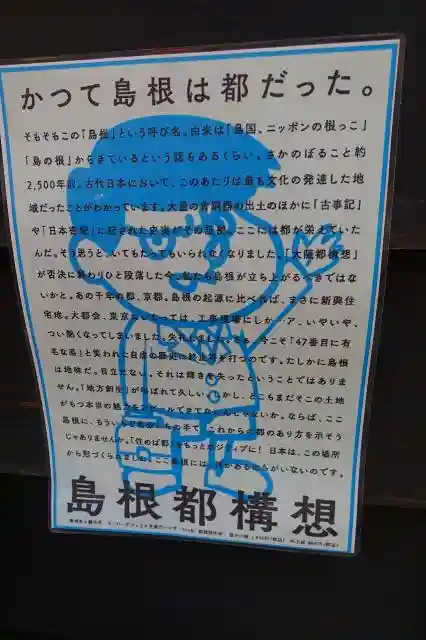 かつて島根は都だった。
そもそもこの「島根」という呼び名。由来は「島国、ニッポンの根っこ」
「島の根」からきているという話もあるくらい。さかのぼること約
2,500年前。古代日本において、このあたりは最も文化の発達した地
域だったことがわかっています。大量の青銅器の出土のほかに「古事記」
や「日本書紀」に記された史実がその証拠。ここには都が栄えていた
んだ。そう思うと、いてもたってもいられなくなりました。「大阪都構想」
が否決に終わりひと段落した今、私たち島根が立ち上がるべきではな
いかと。あの千年の都、京都。島根の起源に比べれば、まさに新興住
宅地。大都会、東京にいたっては、工事現場にしかァ…ア、いやいや、
つい熱くなってしまいました。失礼しました。さあ、今こそ「47番目に有
名な県」と笑われた自虐の歴史に終止符を打つのです。たしかに島根
は地味だ。目立たない。それは輝きを失ったということではありま
せん。「地方創生」が叫ばれて久しい。しかし、どこもまだその土地
がもつ本当の魅力をアピールできてないんじゃないか。ならば、ここ
島根に、もういちど
の手で、これからの都のあり方を示そう
じゃありませんか。「住めば都」をもっとポジティブに！日本は、この場所
から形づくられました。ここ島根には、何かあるにちがいないのです。
島根都構想